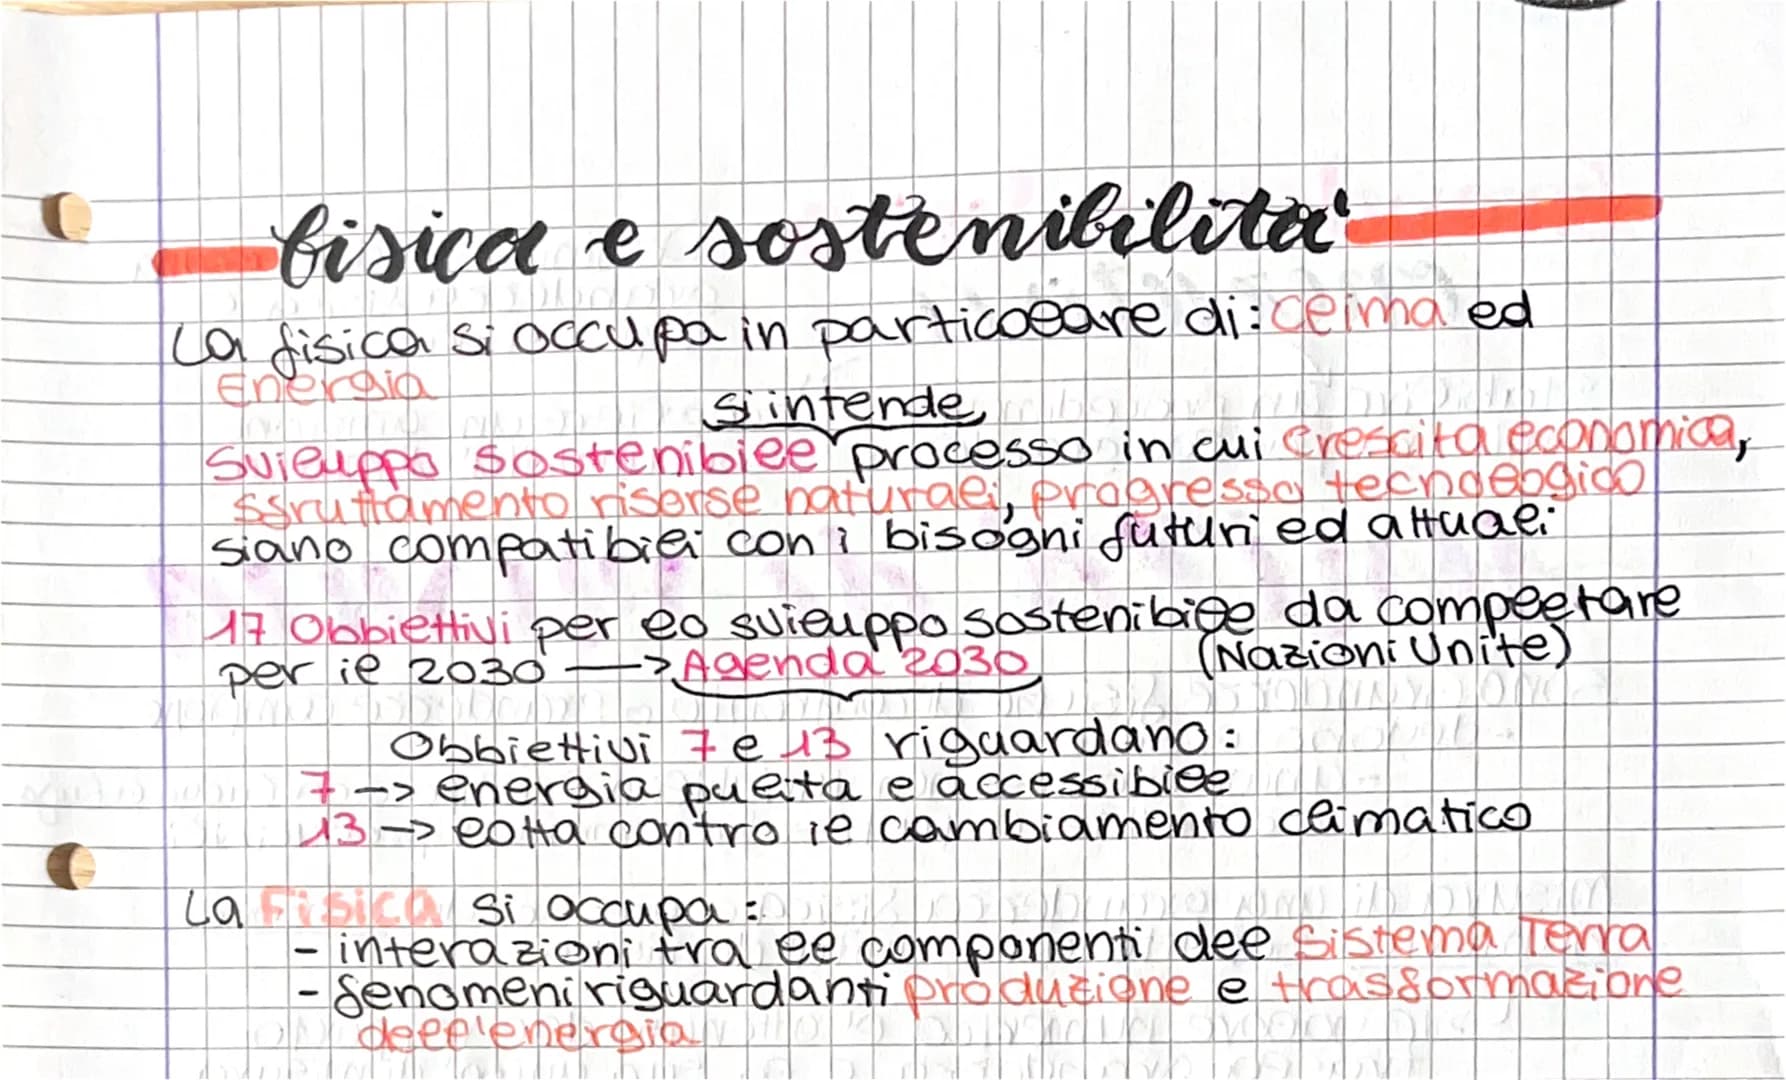 fisica e sostenibilità
La fisica si occupa in particolare di: clima ed
Energia
si intende
Sviluppo sostenibile processo in cui crescita economica,
sfruttamento riserse naturali, progresso tecnologico
siano compatibili con i bisogni futuri ed attuali
17 Obbiettivi per lo sviluppo sostenibile da completare
per il 2030 —> Agenda 2030 (Nazioni Unite)
Obbiettivi 7 e 13 riguardano:
7 -> energia pulita e accessibile
13 -> lotta contro il cambiamento climatico
La Fisica si occupa:
- interazioni tra le componenti del Sistema Terra
- fenomeni riguardanti produzione e trasformazione
dell'energia